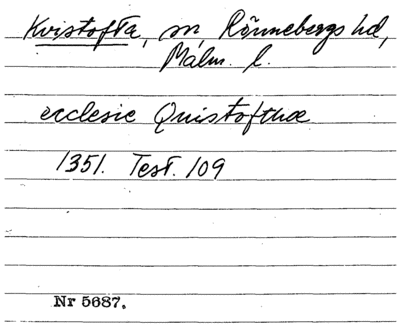 Kvistofta, sn, Rönnebergs hd,
Malm. l.
ecclesie Quistofthæ
1351. Test. 109
Nr 5687.